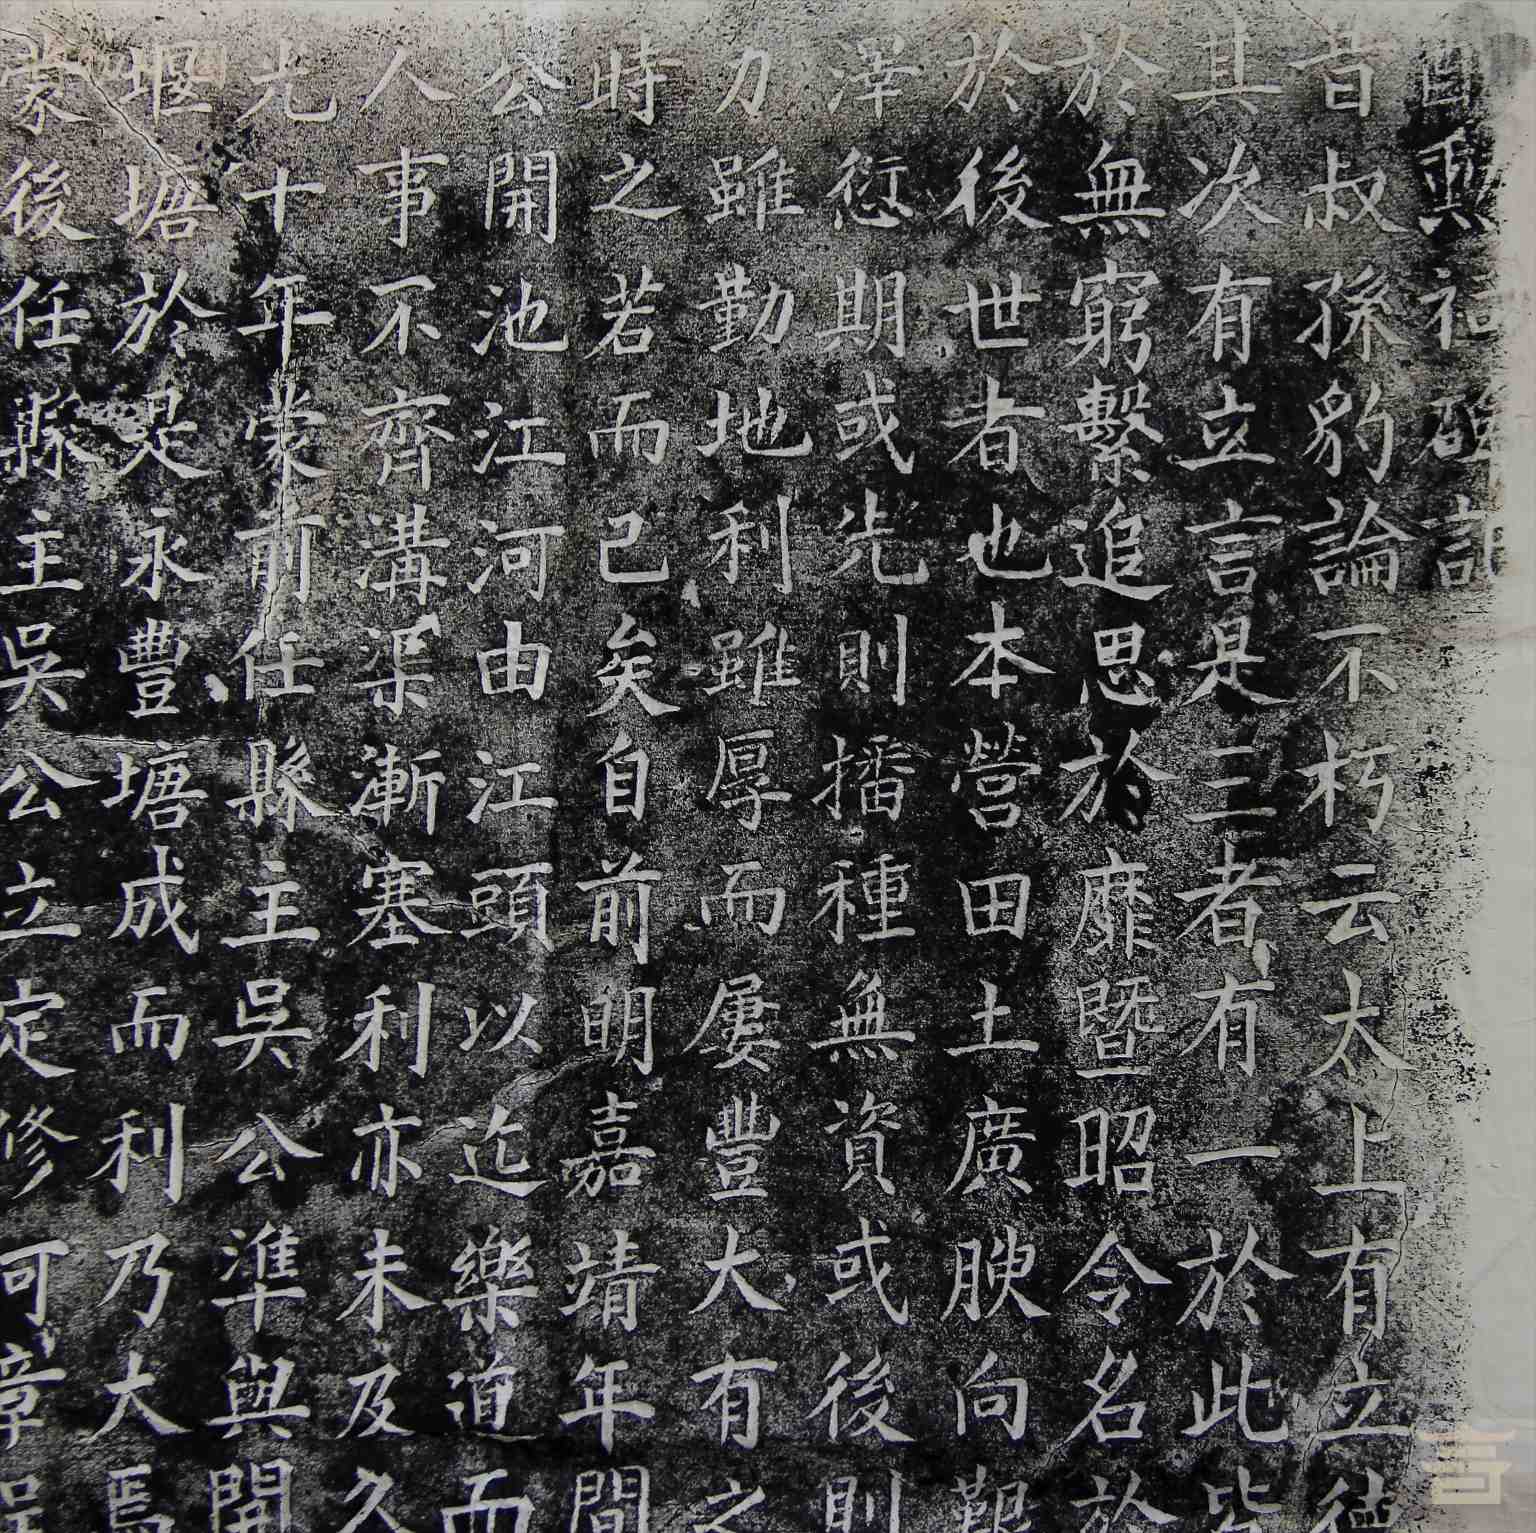 勳祠碑記
昔叔孫豹論不朽云太上有立德
其次有立言是三者有一於此皆
於無窮繫追思於靡暨昭令名於
於後世者也本營田土廣腴向艱
澤愆期或先則播種無資或後則
力雖勤地利雖厚而屢豐大有之
時之若而已矣自前明嘉靖年間
公開池江河由江頭以迄樂道而
人事不齊溝渠漸塞利亦未及久
光十年蒙前任縣主吳公準與開
堰塘於是永豐塘成而利乃大焉
蒙後任縣主吳公立定修可章呈